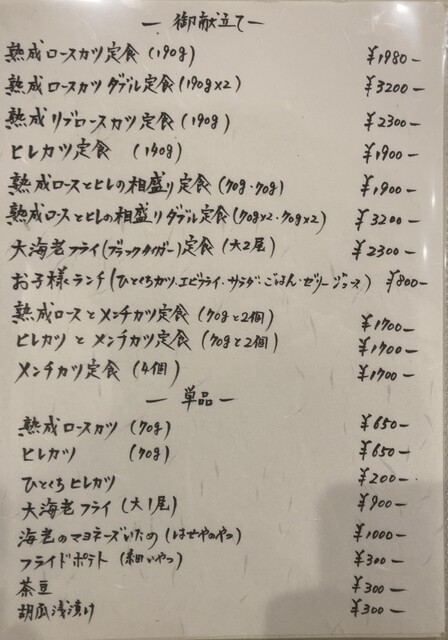 ― 御献立て ―
熟成ロースカツ定食 (190g) ¥1980―
熟成ロースカツ ダブル定食 (190g×2) ¥3200―
熟成リブロースカツ定食 (190g) ¥2300―
ヒレカツ定食 (140g) ¥1900―
熟成ロースとヒレの相盛り定食 (70g・70g) ¥1900―
熟成ロースとヒレの相盛りダブル定食 (70g×2・70g×2) ¥3200―
大海老フライ(ブラックタイガー)定食 (大2尾) ¥2300―
お子様ランチ(ひとくちカツ・エビフライ・サラダ・ごはん・ゼリー ジュース) ¥800―
熟成ロースとメンチカツ定食 (70gと2個) ¥1700―
ヒレカツとメンチカツ定食 (70gと2個) ¥1700―
メンチカツ定食 (4個) ¥1700―
― 単品 ―
熟成ロースカツ (70g) ¥650―
ヒレカツ (70g) ¥650―
ひとくちヒレカツ ¥200―
大海老フライ (大1尾) ¥900―
海老のマヨネーズいため (はせやのやつ) ¥1000―
フライドポテト (細いやつ) ¥300―
茶豆 ¥300―
胡瓜浅漬け ¥300―